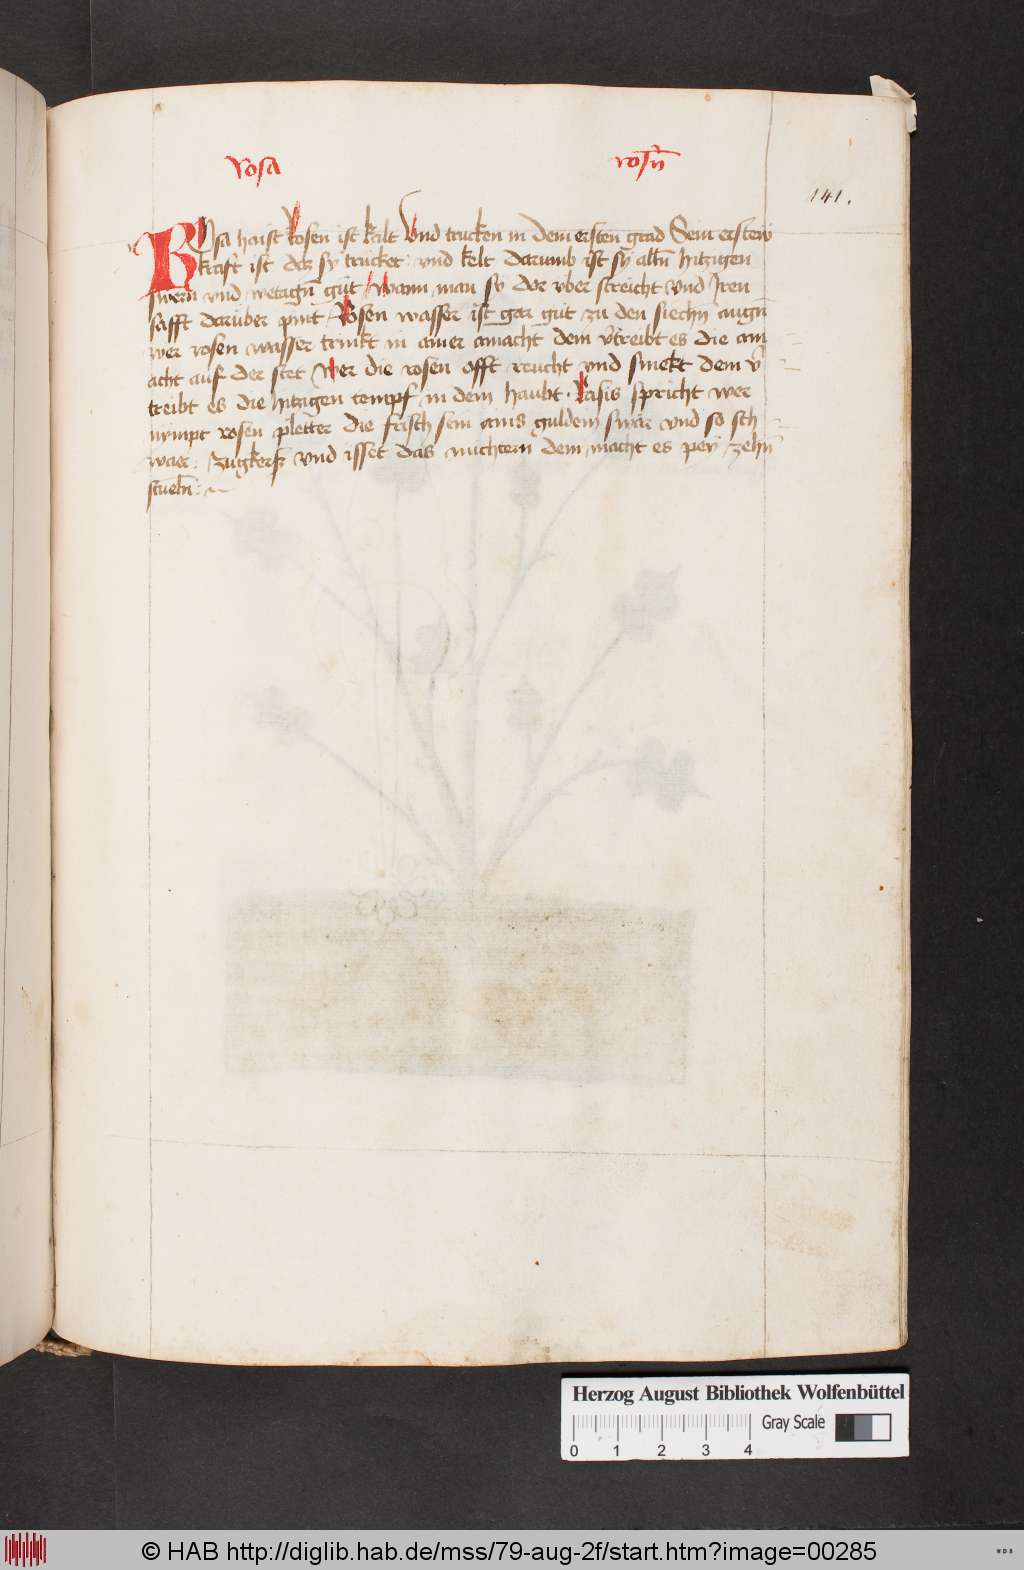 Rosa
rosn̄
141.
ROsa haist Rosen ist kalt Vnd trucken in dem ersten grad Sein ersten
kraft ist daz sy trücket vnd kelt darumb ist sy alln̄ hitzigen
swern vnd wetagn̄ güt Wann man sy dor vber streicht vnd Iren
safft darüber pint Rosen wasser ist gar güt zu den siechn̄ augn̄
wer rosen wasser trinkt in ainer amacht dem v̄treibt es die am
acht auf der stet Wer die rosen offt reucht vnd smekt dem v̄
treibt es die hitzigen tempf in dem haubt. Rasis spricht wer
nympt rosen pletter die frisch sein ains guldein swär vnd so sch
wär zugkers vnd isset das nüchtern dem macht es pey zehn̄
stueln̄ :~
Herzog August Bibliothek Wolfenbüttel
Gray Scale
0 1 2 3 4
© HAB http://diglib.hab.de/mss/79-aug-2f/start.htm?image=00285